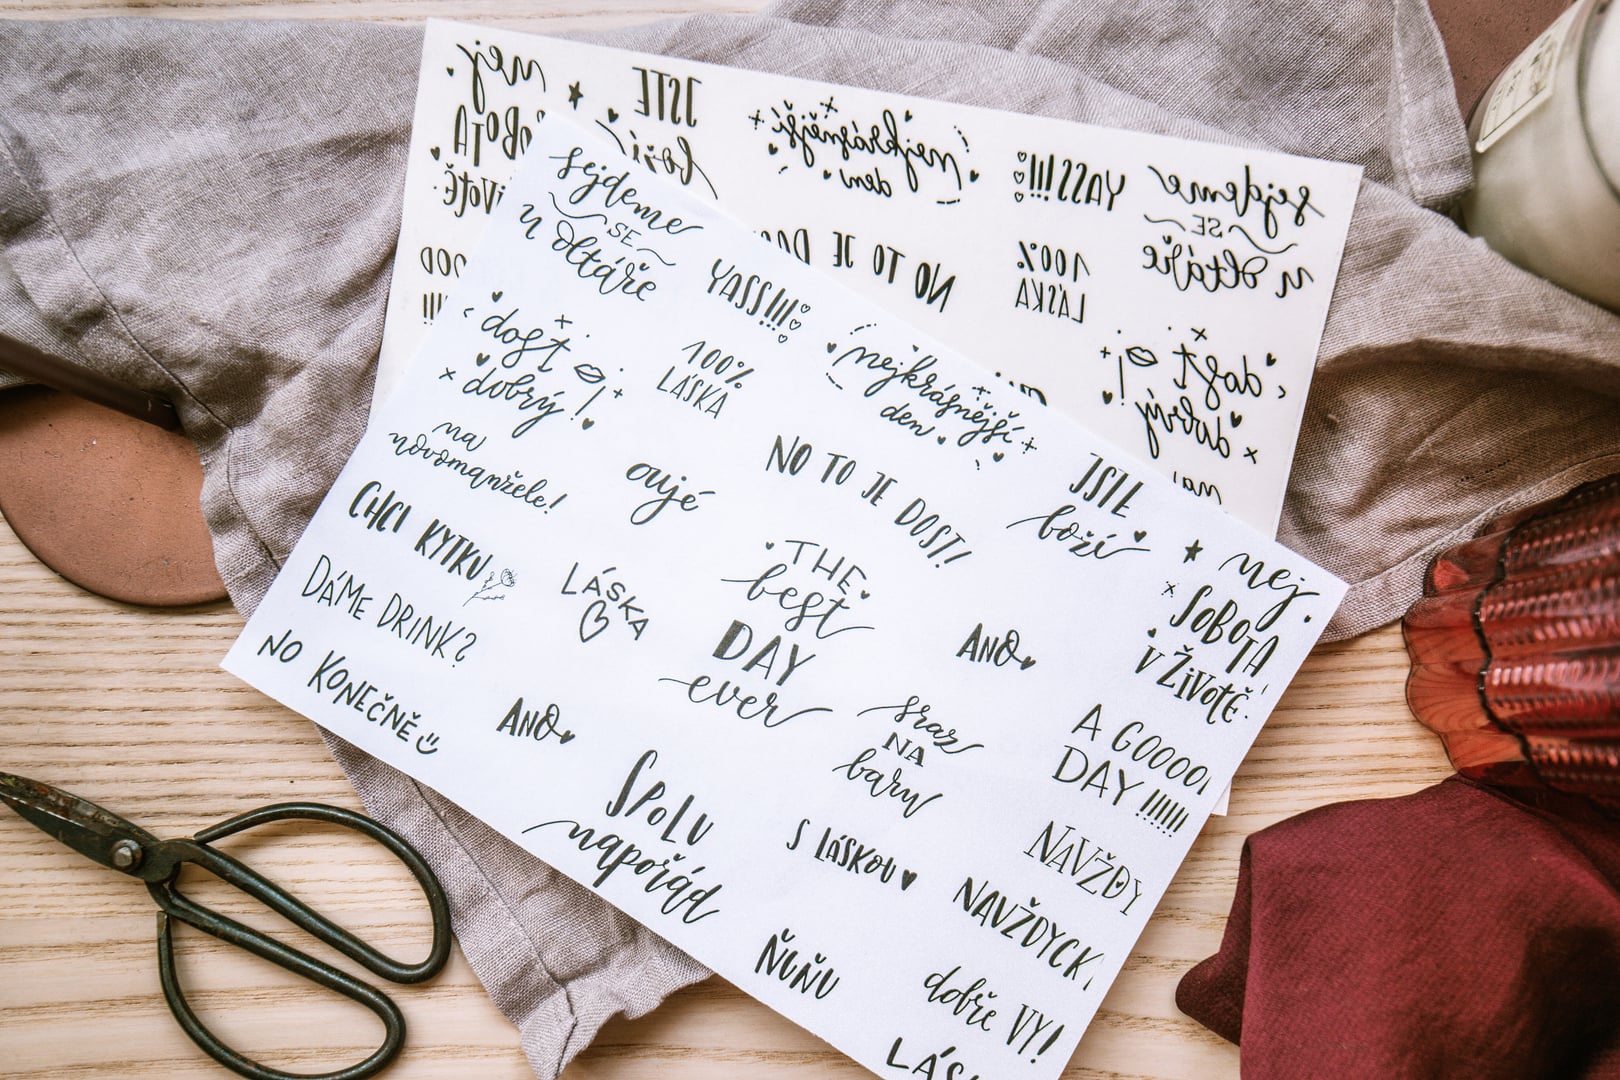 sejdeme
SE
u oltáře
YASS!!!
dost
dobrý!
100%
LÁSKA
nejkrásnější
den
na
novomanžele!
oujé
NO TO JE DOST!
JSTE
boží
nej.
SOBOTA
V ŽIVOTĚ.
CHCI KYTKU
LÁSKA
THE
best
DAY
ever
ANO
DÁME DRINK?
NO KONEČNĚ
ANO
sraz
NA
baru
A GOOOO
DAY !!!!!!
SPOLU
napořád
S LÁSKOU
NAVŽDY
NAVŽDYCK
ŇUŇU
dobře VY!
LÁS
nej.
SOBOTA
ŽIVOTĚ
JSTE
boží
nejkrásnější
den
YASS!!!!
sejdeme
SE
u oltáře
NO TO JE DO
100%
LÁSKA
dost
dobrý!